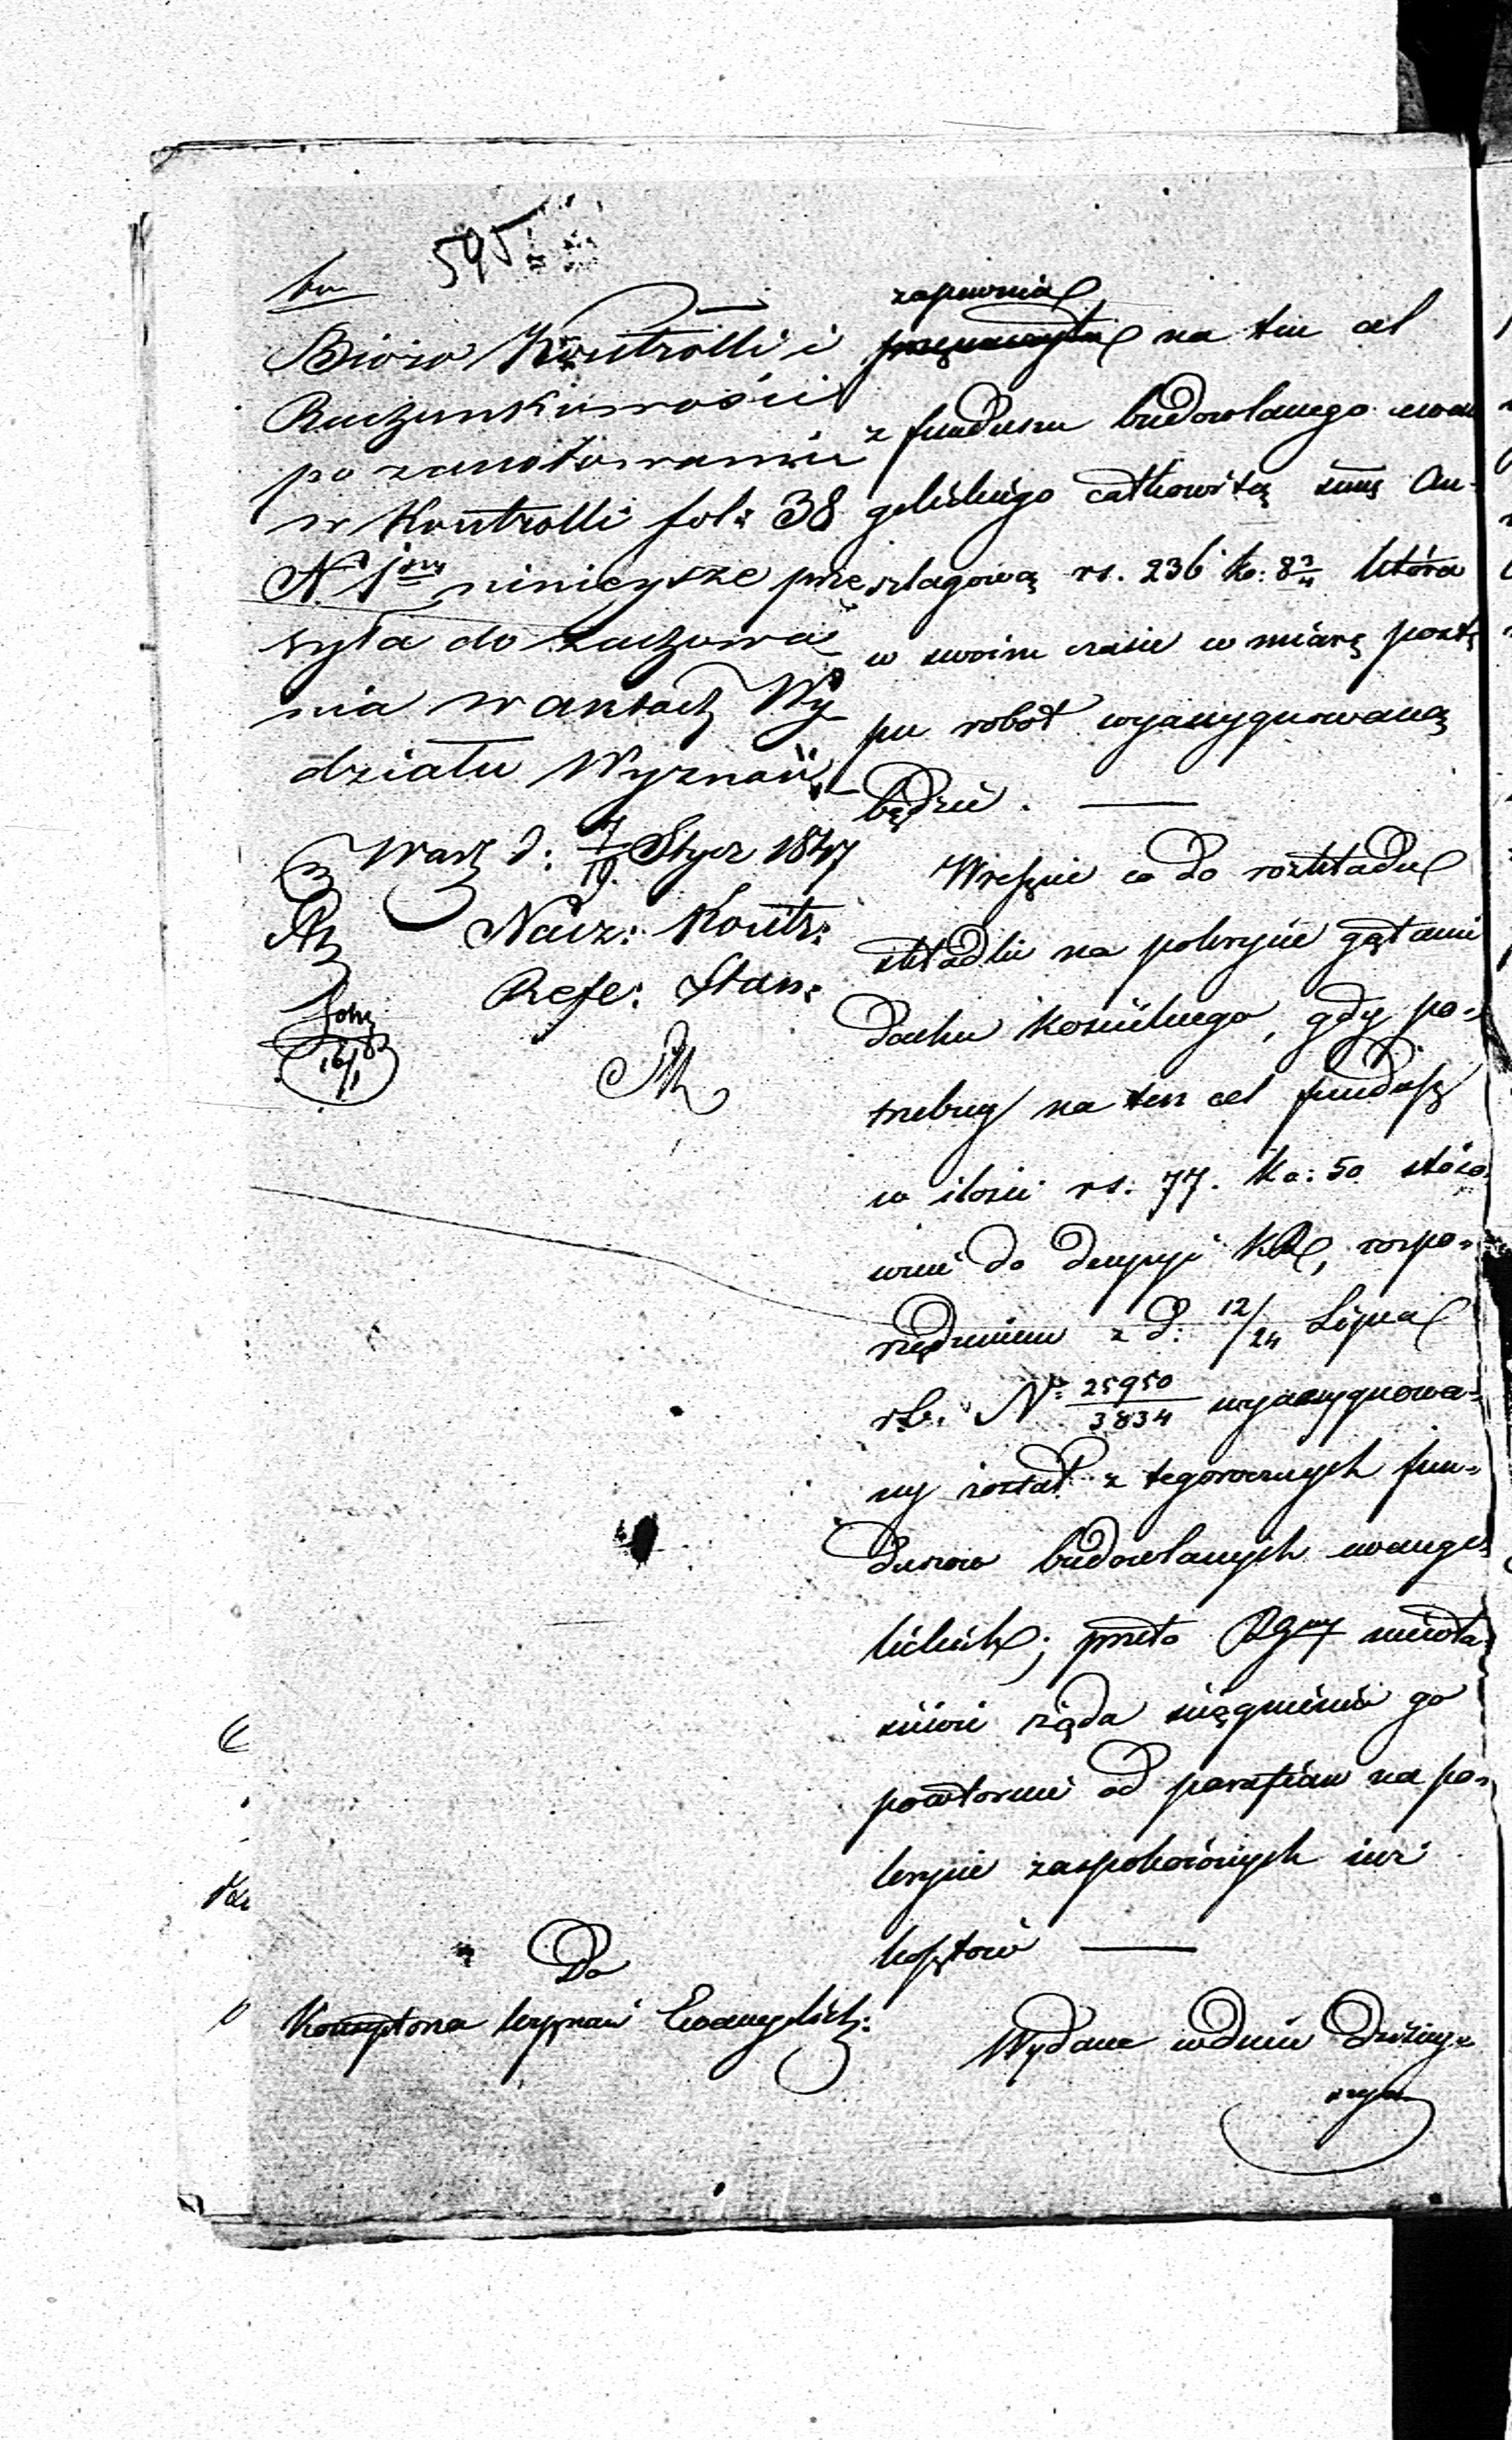 595
Bióro Kontrolli i
Rachunkowości
po zanotowaniu
w Kontrolli fol: 38
N. 1 niniejsze prze
syła do zachowa
nia w aktach Wy
działu Wyznań
Warsz d: 7/19 Stycz 1847
Nacz: Kontr:
Refe: Stan:
16/1
zapewnia
przeznaczyła na ten cel
z funduszu budowlanego ewan
gelickiego całkowitą sumę an-
szlagową rs. 236 ko: 8 3/4 która
w swoim czasie w miarę postę
pu robot wyassygnowaną
będzie. —
Wreszcie co do rozkładu
składki na pokrycie gątami
dachu kościelnego, gdy po-
trzebny na ten cel fundusz
w ilości rs. 77. ko: 50 stóso
wnie do decyzyi KR, rospo-
rządzeniem z d: 12/24 Lipca
r.b. N: 25950/3834 wyassygnowa-
ny został z tegorocznych fun-
duszow budowlanych ewange-
lickich; przeto RGny niewła-
ściwie żąda ściągnienia go
powtornie od parafian na po-
krycie zaspokoionych iuż
kosztow —
Do
Konsystorza Wyznań Ewangelick:
Wydane w dniu dzisiey-
szym